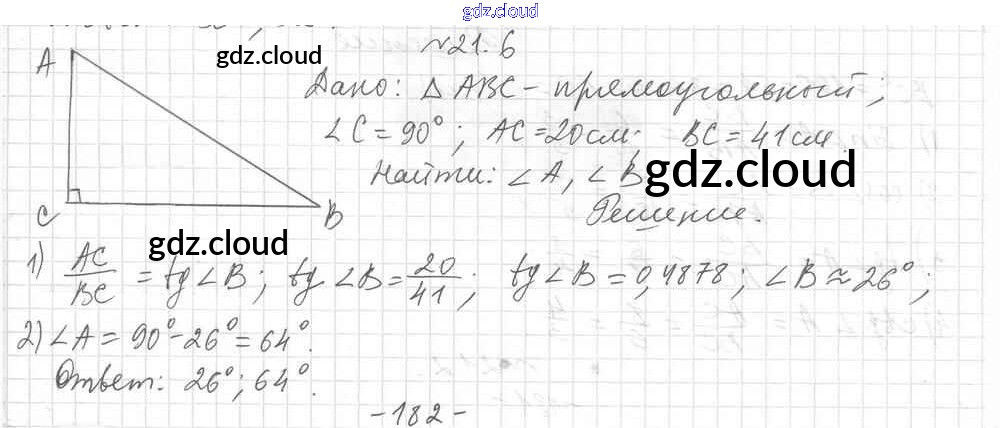 gdz.cloud
№21.6
A
gdz.cloud
Дано: △ ABC - прямоугольный;
∠C = 90°; AC = 20 см; BC = 41 см.
Найти: ∠A, ∠B
gdz.cloud
Решение.
C
B
gdz.cloud
1) AC/BC = tg∠B; tg ∠B = 20/41; tg∠B = 0,4878; ∠B ≈ 26°;
2) ∠A = 90° - 26° = 64°.
Ответ: 26°; 64°.
- 182 -